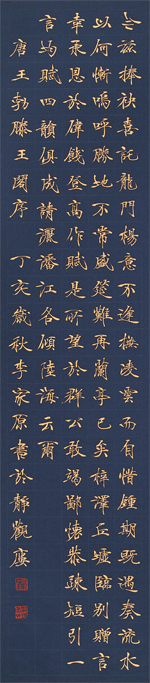 今茲捧袂喜託龍門楊意不逢撫凌雲而自惜鍾期既遇奏流水
以何慚嗚呼勝地不常盛筵難再蘭亭已矣梓澤丘墟臨別贈言
幸承恩於偉餞登高作賦是所望於群公敢竭鄙懷恭疎短引一
言均賦四韻俱成請灑潘江各傾陸海云爾
唐王勃滕王閣序 丁亥歲秋李家原書於靜觀廬